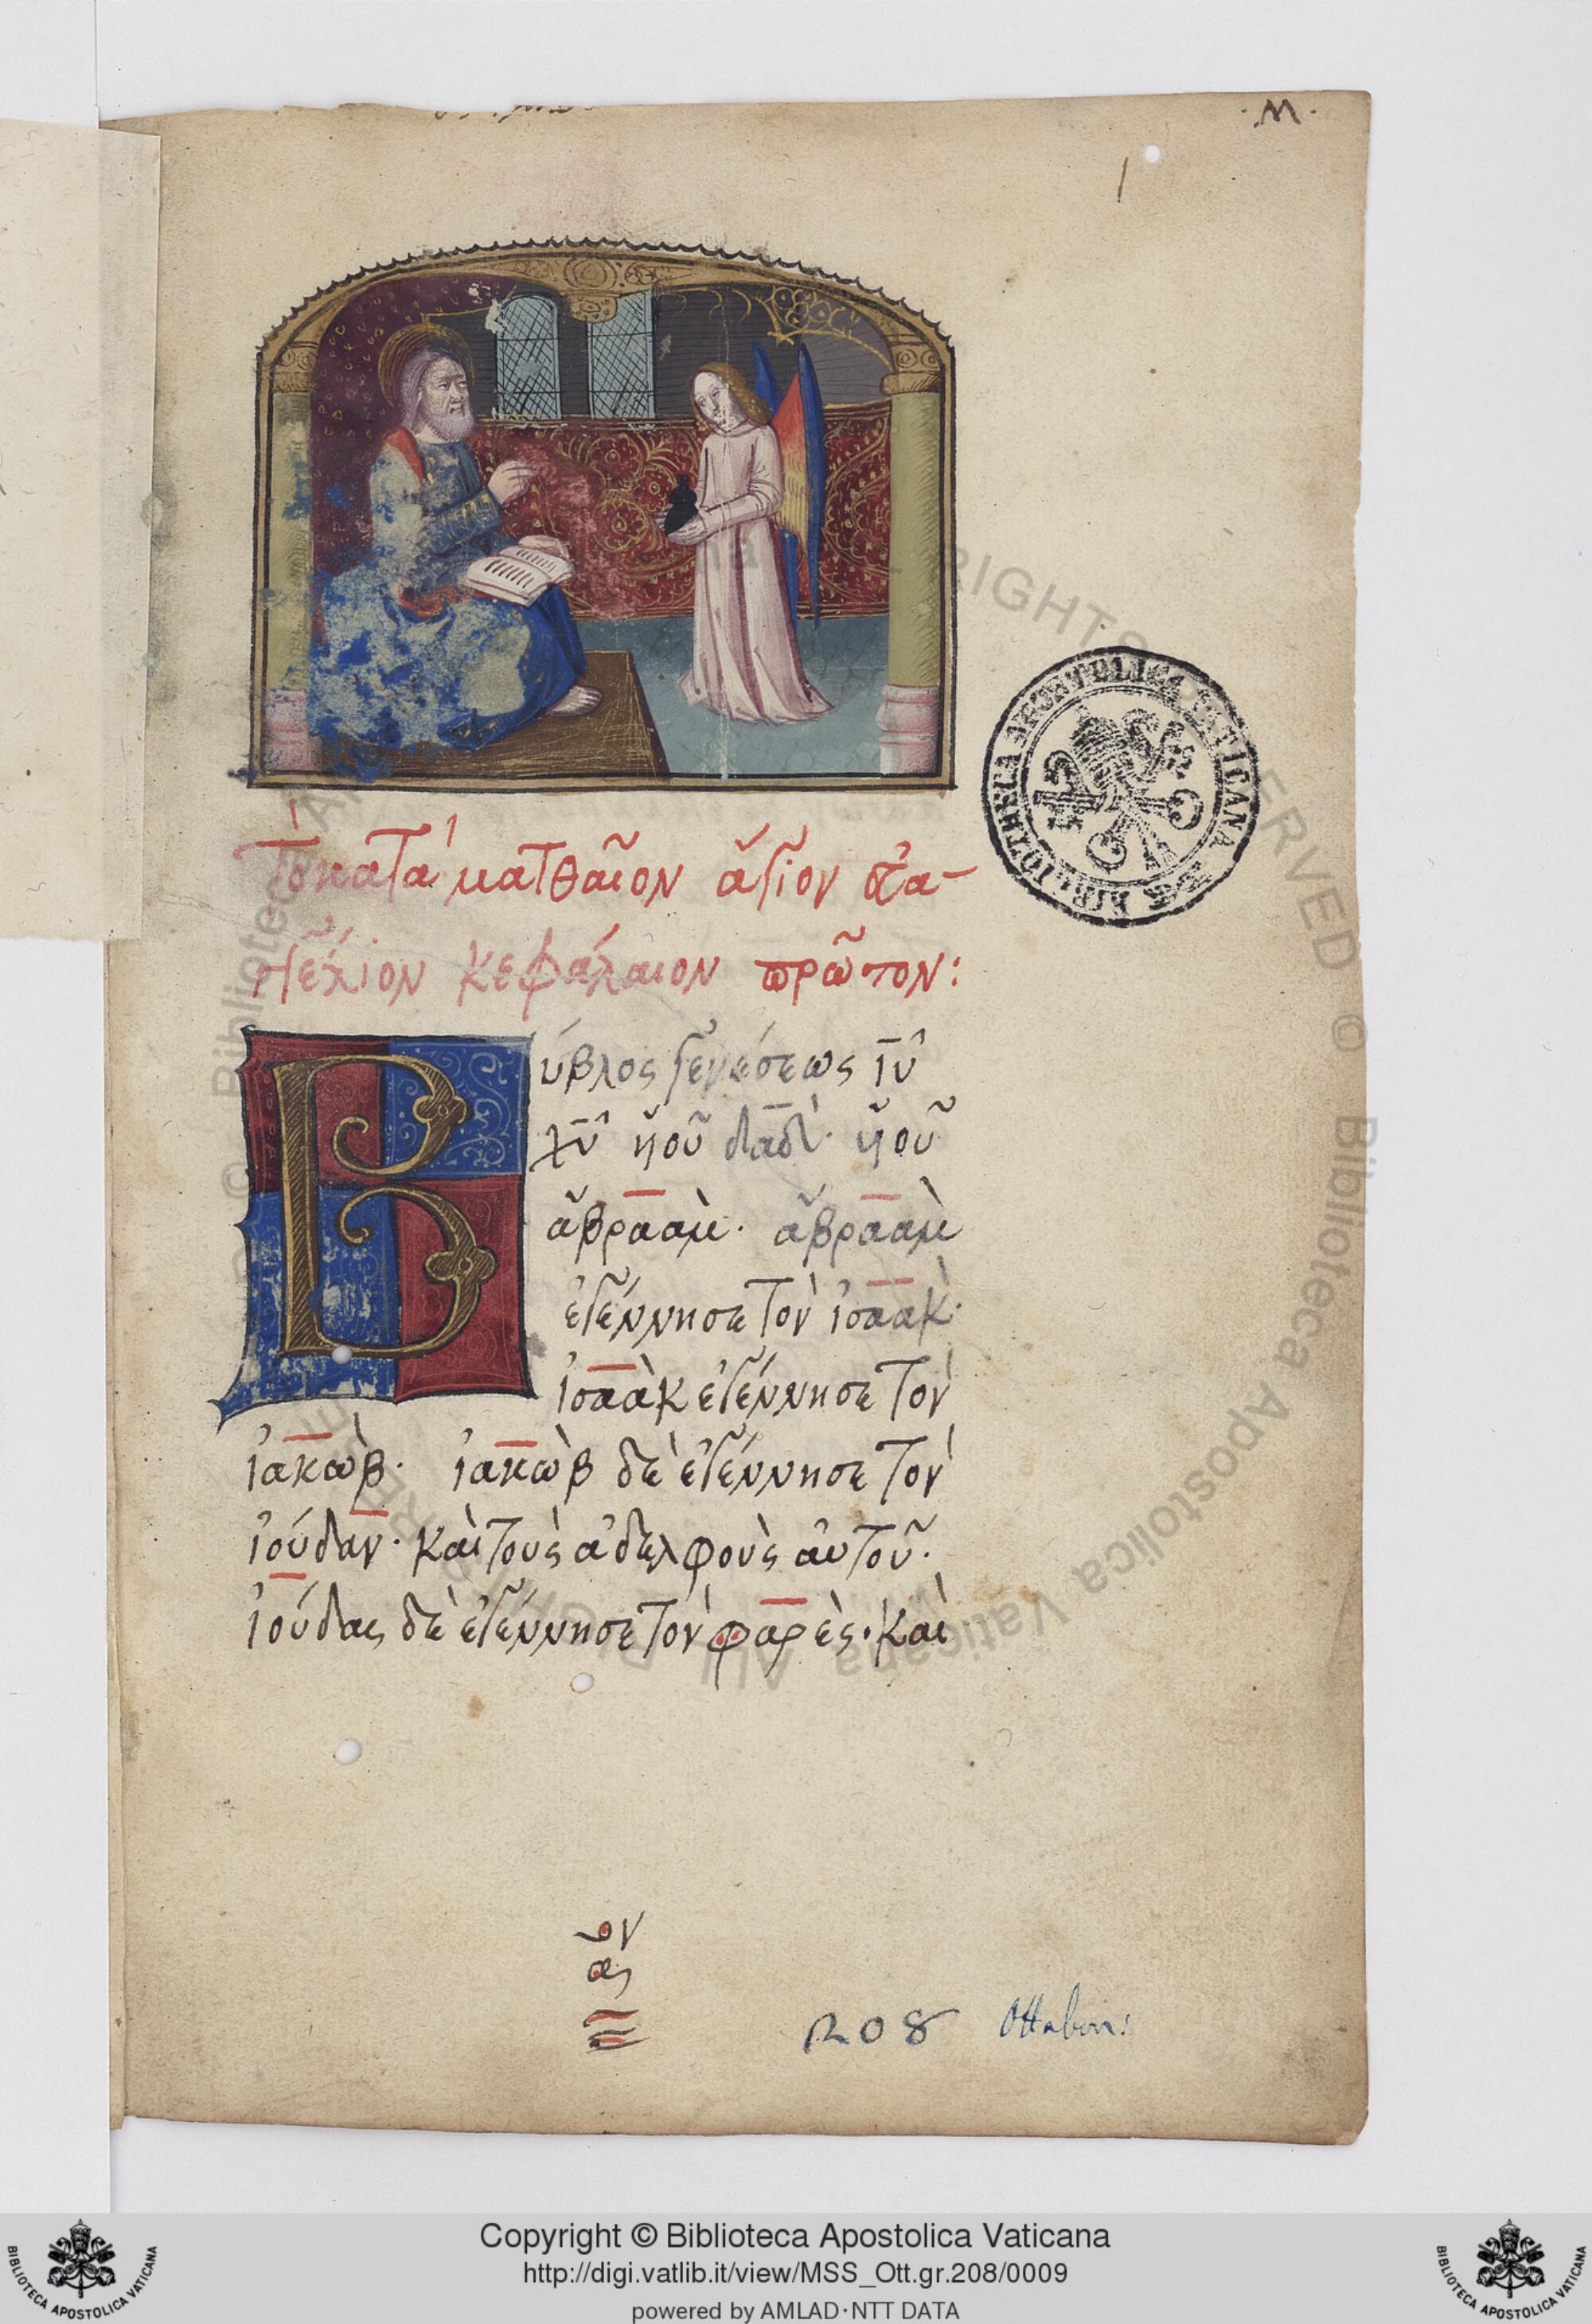 ·M·
1
Τὸ κατὰ ματθαῖον ἅγιον εὐα-
γγέλιον κεφάλαιον πρῶτον:
Βύβλος γενέσεως ἰῦ
χῦ ϋοῦ δαδ̀· ϋοῦ
ἀβραὰμ· ἀβραὰμ
ἐγέννησε τὸν ἰσαὰκ·
ἰσαὰκ ἐγέννησε τὸν
ἰακὼβ· ἰακὼβ δὲ ἐγέννησε τὸν
ἰούδαν· καὶ τοὺς ἀδελφοὺς αὐτοῦ·
ἰούδας δὲ ἐγέννησε τὸν φαρὲς· καὶ
208 Ottabon:
BIBLIOTHECA APOSTOLICA VATICANA
Copyright © Biblioteca Apostolica Vaticana
http://digi.vatlib.it/view/MSS_Ott.gr.208/0009
powered by AMLAD·NTT DATA
BIBLIOTECA APOSTOLICA VATICANA
BIBLIOTECA APOSTOLICA VATICANA